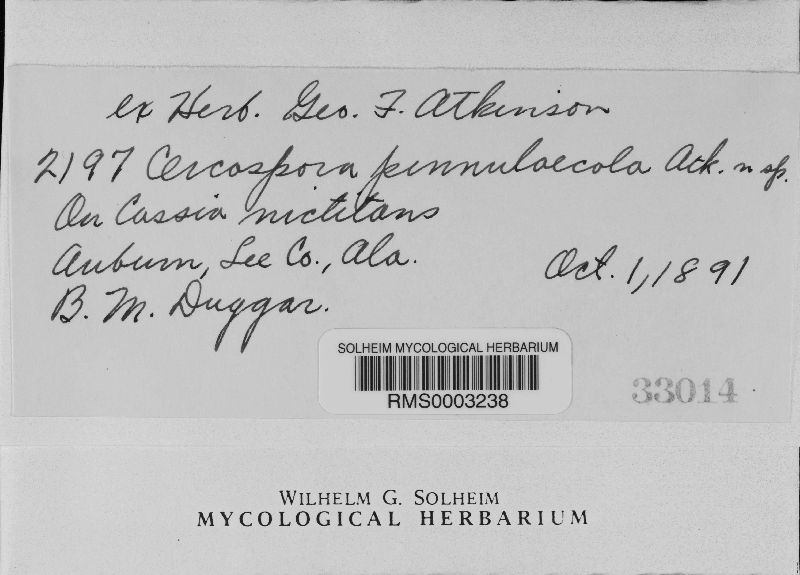 ex Herb. Geo. F. Atkinson
2197 Cercospora pinnulaecola Atk. n sp.
On Cassia nictitans
Auburn, Lee Co., Ala. Oct. 1, 1891
B. M. Duggar.
SOLHEIM MYCOLOGICAL HERBARIUM
RMS0003238
33014
WILHELM G. SOLHEIM
MYCOLOGICAL HERBARIUM